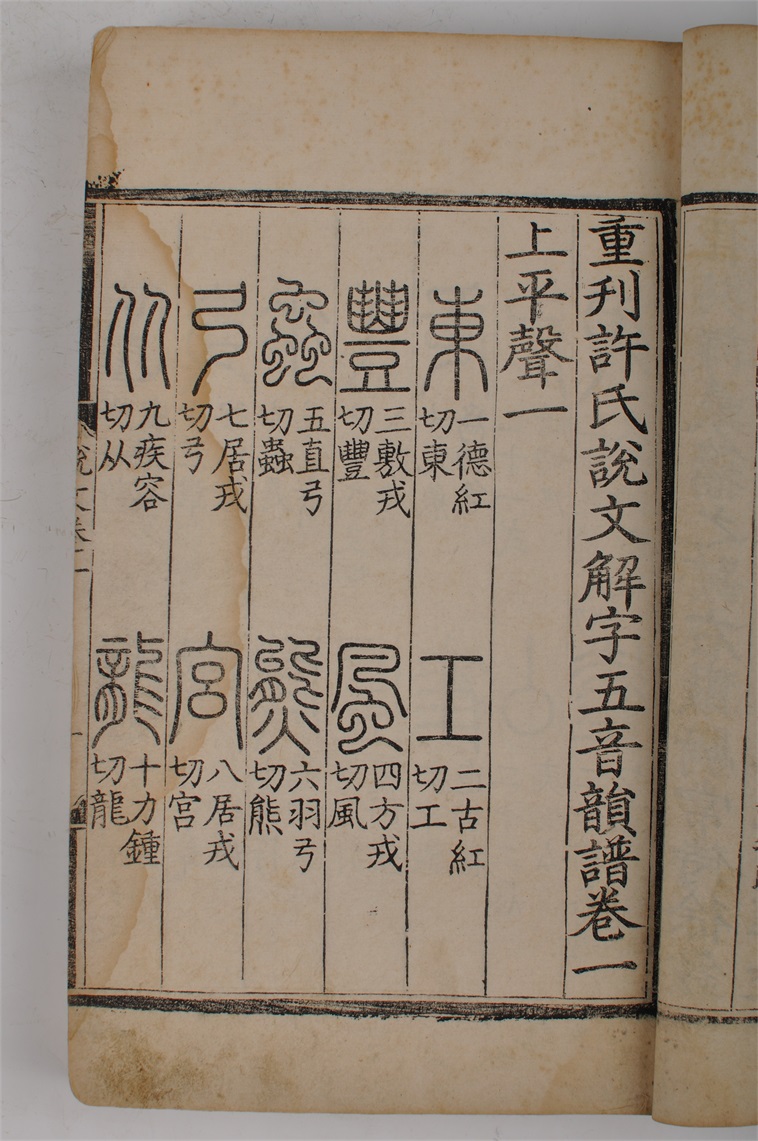 重刊許氏說文解字五音韻譜卷一
上平聲一
東 一德紅切東
工 二古紅切工
豐 三敷戎切豐
風 四方戎切風
蟲 五直弓切蟲
熊 六羽弓切熊
弓 七居戎切弓
宮 八居戎切宫
从 九疾容切从
龍 十力鍾切龍
說文卷一